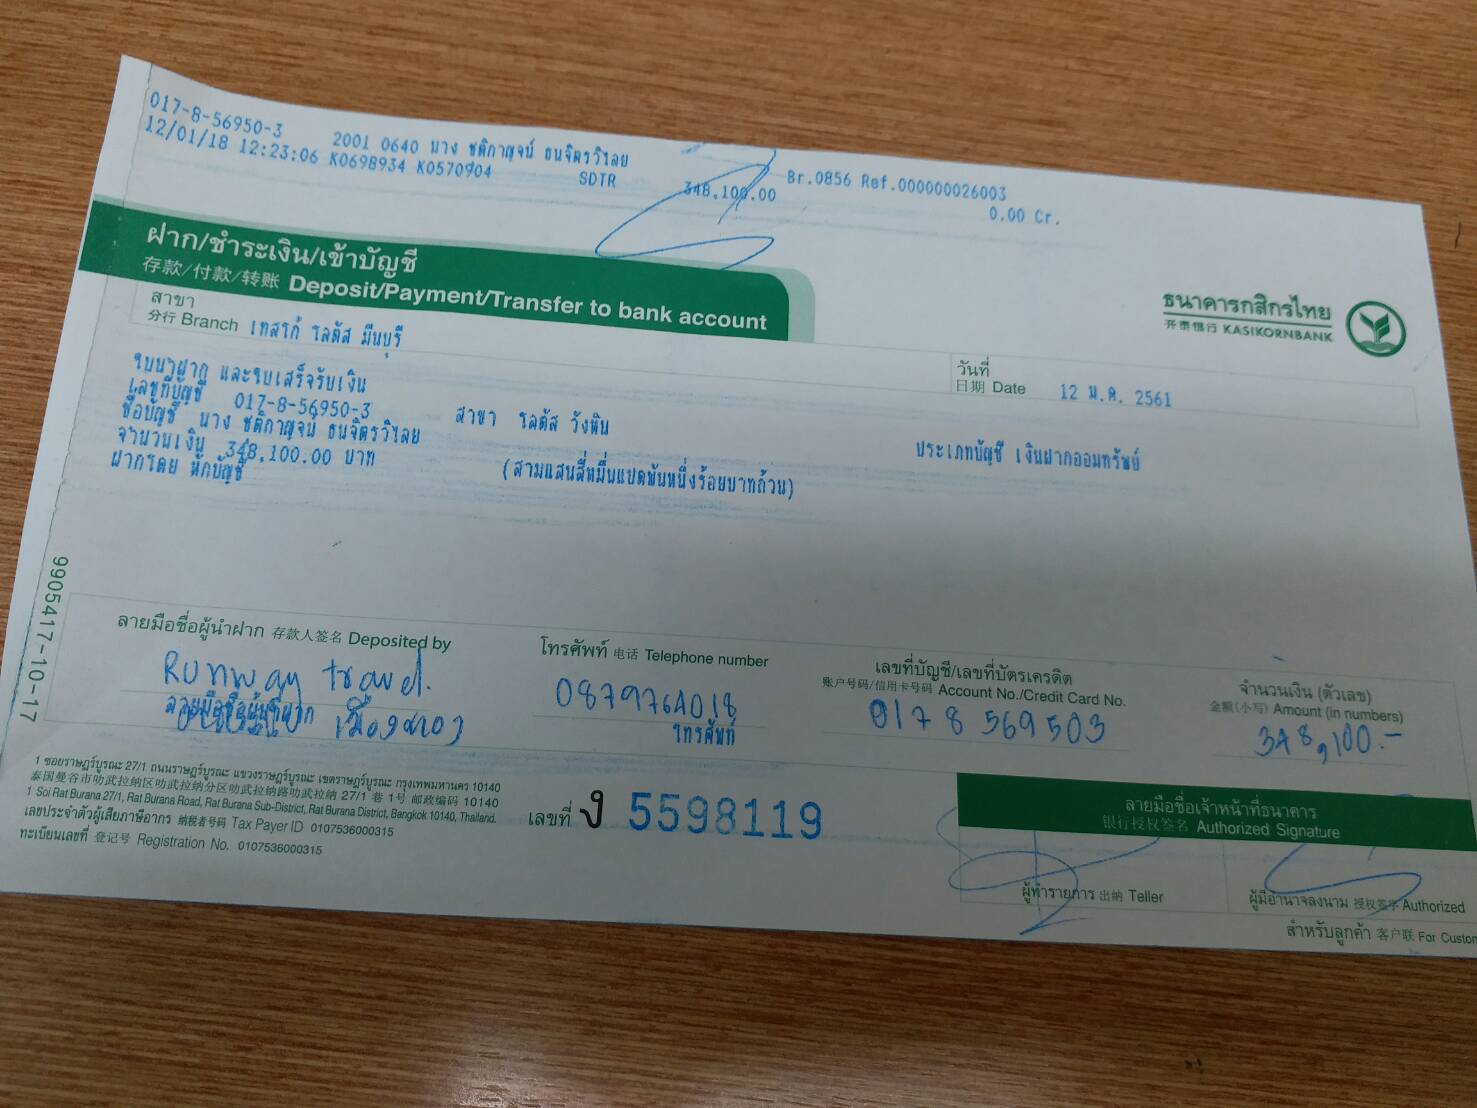 017-8-56950-3 2001 0640 นาง ชติกาญจน์ ธนจิตรวิไลย Br.0856 Ref.000000026003
12/01/18 12:23:06 K0698934 K0570904 SDTR 348,100.00 0.00 Cr.
ฝาก/ชำระเงิน/เข้าบัญชี
存款/付款/转账 Deposit/Payment/Transfer to bank account
ธนาคารกสิกรไทย
开泰银行 KASIKORNBANK
สาขา
分行 Branch เทสโก้ โลตัส มีนบุรี
วันที่
日期 Date 12 ม.ค. 2561
ใบนำฝาก และใบเสร็จรับเงิน
เลขที่บัญชี 017-8-56950-3 สาขา โลตัส วังหิน ประเภทบัญชี เงินฝากออมทรัพย์
ชื่อบัญชี นาง ชติกาญจน์ ธนจิตรวิไลย
จำนวนเงิน 348,100.00 บาท (สามแสนสี่หมื่นแปดพันหนึ่งร้อยบาทถ้วน)
ฝากโดย หักบัญชี
9905417-10-17
ลายมือชื่อผู้นำฝาก 存款人签名 Deposited by
Runway travel.
ลายมือชื่อผู้นำฝาก
โทรศัพท์ 电话 Telephone number
0879764018
โทรศัพท์
เลขที่บัญชี/เลขที่บัตรเครดิต
账户号码/信用卡号码 Account No./Credit Card No.
0178569503
จำนวนเงิน (ตัวเลข)
金额(小写) Amount (in numbers)
348,100.-
1 ซอยราษฎร์บูรณะ 27/1 ถนนราษฎร์บูรณะ แขวงราษฎร์บูรณะ เขตราษฎร์บูรณะ กรุงเทพมหานคร 10140
泰国曼谷市叻武拉纳区叻武拉纳分区叻武拉纳路叻武拉纳 27/1 巷 1号 邮政编码 10140
1 Soi Rat Burana 27/1, Rat Burana Road, Rat Burana Sub-District, Rat Burana District, Bangkok 10140, Thailand.
เลขประจำตัวผู้เสียภาษีอากร 纳税者号码 Tax Payer ID 0107536000315
ทะเบียนเลขที่ 登记号 Registration No. 0107536000315
เลขที่ ง 5598119
ลายมือชื่อเจ้าหน้าที่ธนาคาร
银行授权签名 Authorized Signature
ผู้ทำรายการ 出纳 Teller
ผู้มีอำนาจลงนาม 授权签字 Authorized
สำหรับลูกค้า 客户联 For Custom